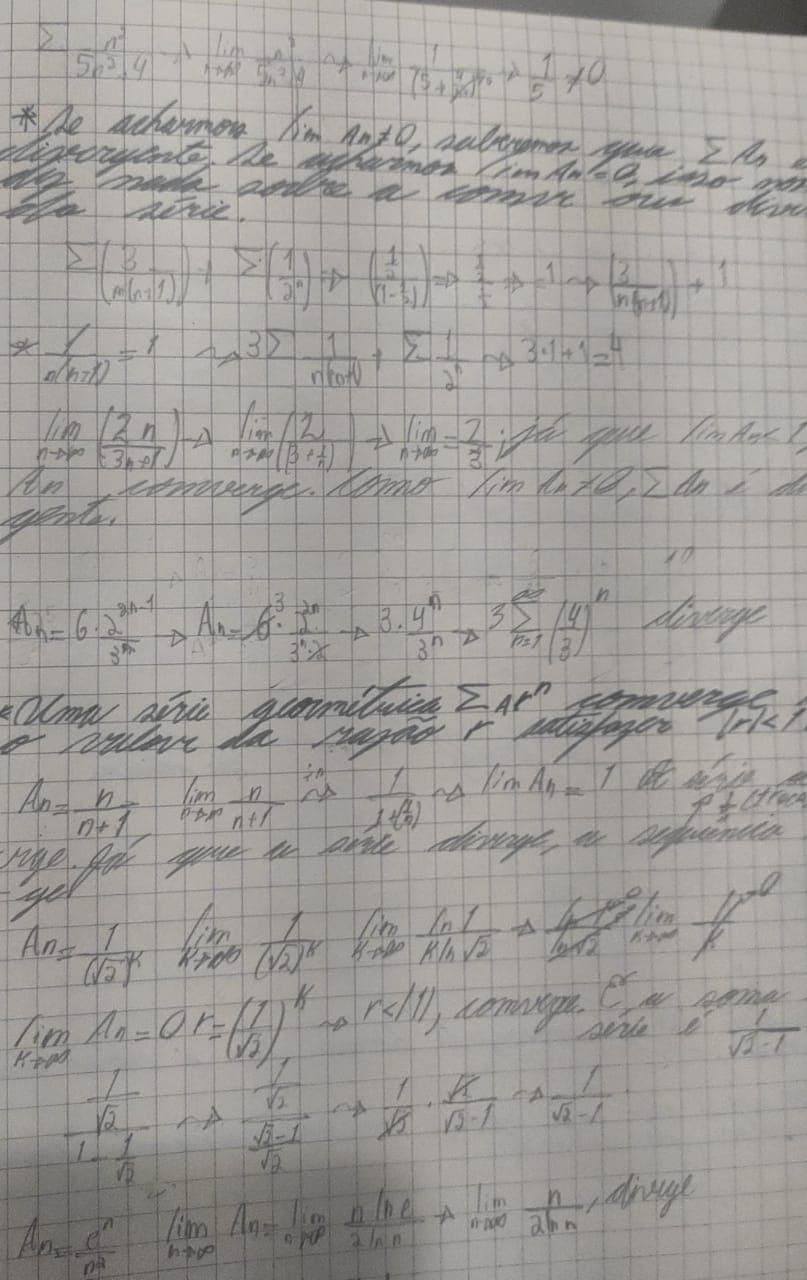 Σ n²/(5n²+4) → lim n→∞ n²/(5n²+4) → lim n→∞ 1/(5+4/n²) → 1/5 ≠ 0
* Se acharmos lim An≠0, saberemos que Σ An é
divergente. Se acharmos lim An=0, isso não
diz nada sobre a conver ou diver
da série.
Σ(3/(n(n+1))) + Σ(1/2ⁿ) ⇒ ((1/2)/(1-1/2)) ⇒ (1/2)/(1/2) ⇒ =1 → (3/(n(n+1))) + 1
* 1/(n(n+1)) = 1 → 3Σ 1/(n(n+1)) + Σ 1/2ⁿ → 3·1+1=4
lim n→∞ (2n/(3n+1)) → lim n→∞ (2/(3+1/n)) → lim n→∞ = 2/3; já que lim An<1,
An converge. Como lim An≠0, Σ An é di
gente.
An = 6·2^(2n-1)/3ⁿ → An = 6³·2^(2n)/(3ⁿ·2) → 3·4ⁿ/3ⁿ → 3 Σ n=1 ∞ (4/3)ⁿ diverge
* Uma série geométrica Σ Arⁿ converge
o valor da razão r satisfazer |r|<1.
An = n/(n+1) lim n→∞ n/(n+1) ÷n → 1/(1+(1/n)) → lim An = 1 A série
rge. Já que a série diverge, a sequência
ge
An = 1/(√2)^k lim k→∞ 1/(√2)^k lim k→∞ ln 1/(k ln √2) → ln 1/ln √2 lim k→∞ 1/k 0
lim k→∞ An = 0 r = (1/√2)^k → r<|1|, converge. E a soma
série é 1/(√2-1)
(1/√2)/(1-1/√2) → (1/√2)/((√2-1)/√2) → 1/√2 · √2/(√2-1) → 1/(√2-1)
An = eⁿ/n² lim n→∞ An = lim n→∞ n ln e/(2 ln n) → lim n→∞ n/(2 ln n), diverge